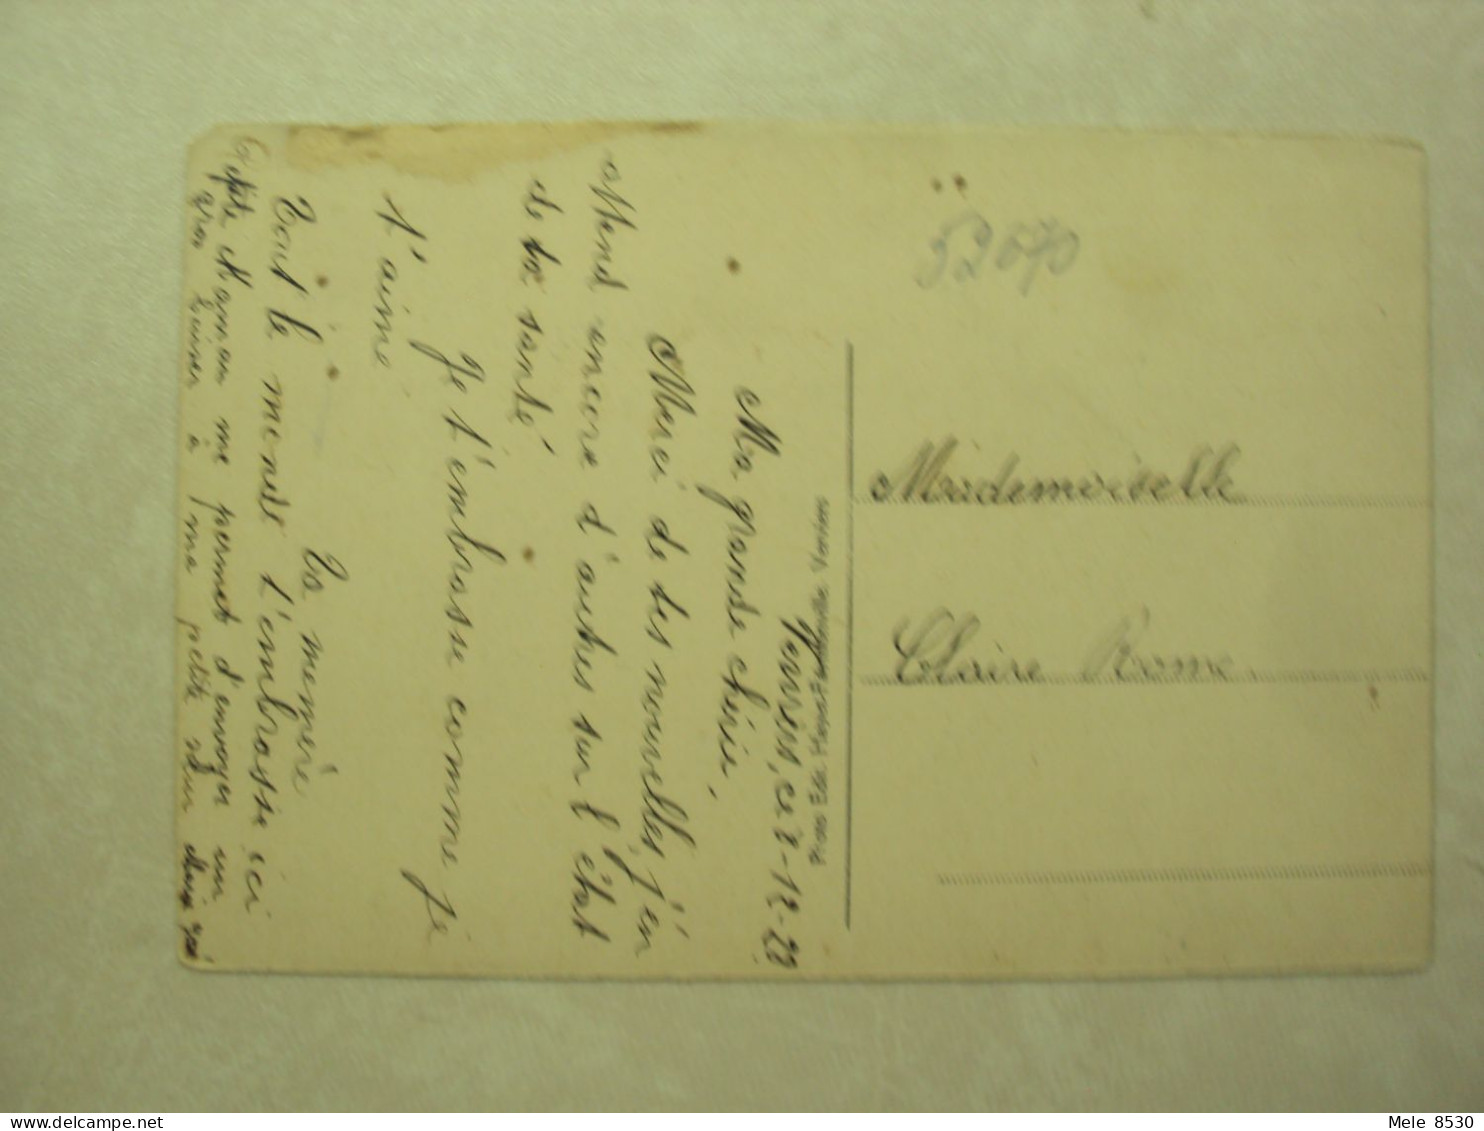 Verviers, ce 8-12-23
Ma grande chérie,
Merci de tes nouvelles, j'en
attend encore d'autres sur l'état
de ta santé
Je t'embrasse comme je
t'aime
Ta memère
Tout le monde t'embrasse ici
petite Maman me permet d'envoyer un
gros baiser à ma petite sœur
Mademoiselle
Claire Rome.
52070
Photo Edit. Verviers
Mele 8530